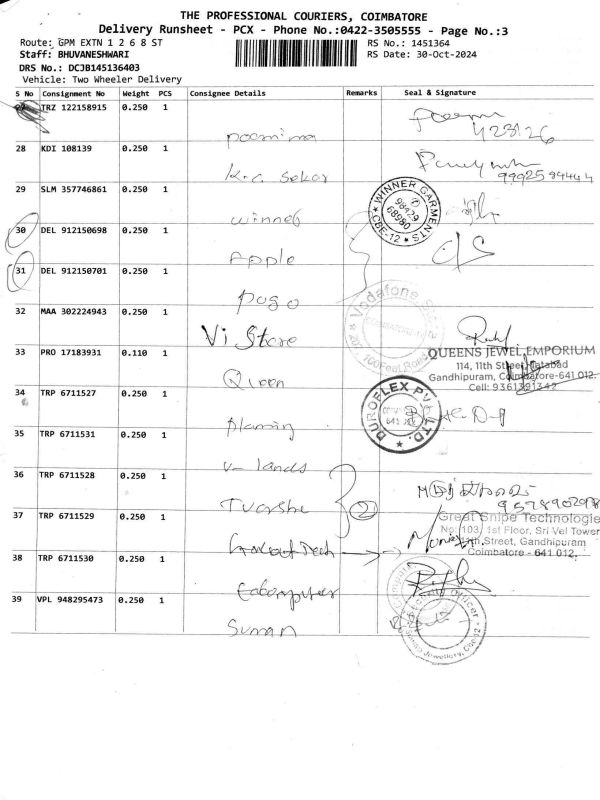 THE PROFESSIONAL COURIERS, COIMBATORE
Delivery Runsheet - PCX - Phone No.:0422-3505555 - Page No.:3
Route: GPM EXTN 1 2 6 8 ST RS No.: 1451364
Staff: BHUVANESHWARI RS Date: 30-Oct-2024
DRS No.: DCJB145136403
Vehicle: Two Wheeler Delivery
S No Consignment No Weight PCS Consignee Details Remarks Seal & Signature
TRZ 122158915 0.250 1
poornima
28 KDI 108139 0.250 1
K.C. Sekar
29 SLM 357746861 0.250 1 WINNER GARMENTS 98429 68980 CBE-12
winner
30 DEL 912150698 0.250 1
Apple
31 DEL 912150701 0.250 1
pogo
32 MAA 302224943 0.250 1 Vodafone
Vi Store
33 PRO 17183931 0.110 1 QUEENS JEWEL EMPORIUM
114, 11th Street,
Gandhipuram, Coimbatore-641 012.
Cell: 9361391342
Queen
34 TRP 6711527 0.250 1 DUROFLEX PVT LTD.
35 TRP 6711531 0.250 1
V- lands
36 TRP 6711528 0.250 1
2
37 TRP 6711529 0.250 1 Great Snipe Technologie
No: 103/ 1st Floor, Sri Vel Tower
11th Street, Gandhipuram
Coimbatore - 641 012.
38 TRP 6711530 0.250 1
39 VPL 948295473 0.250 1
Suman